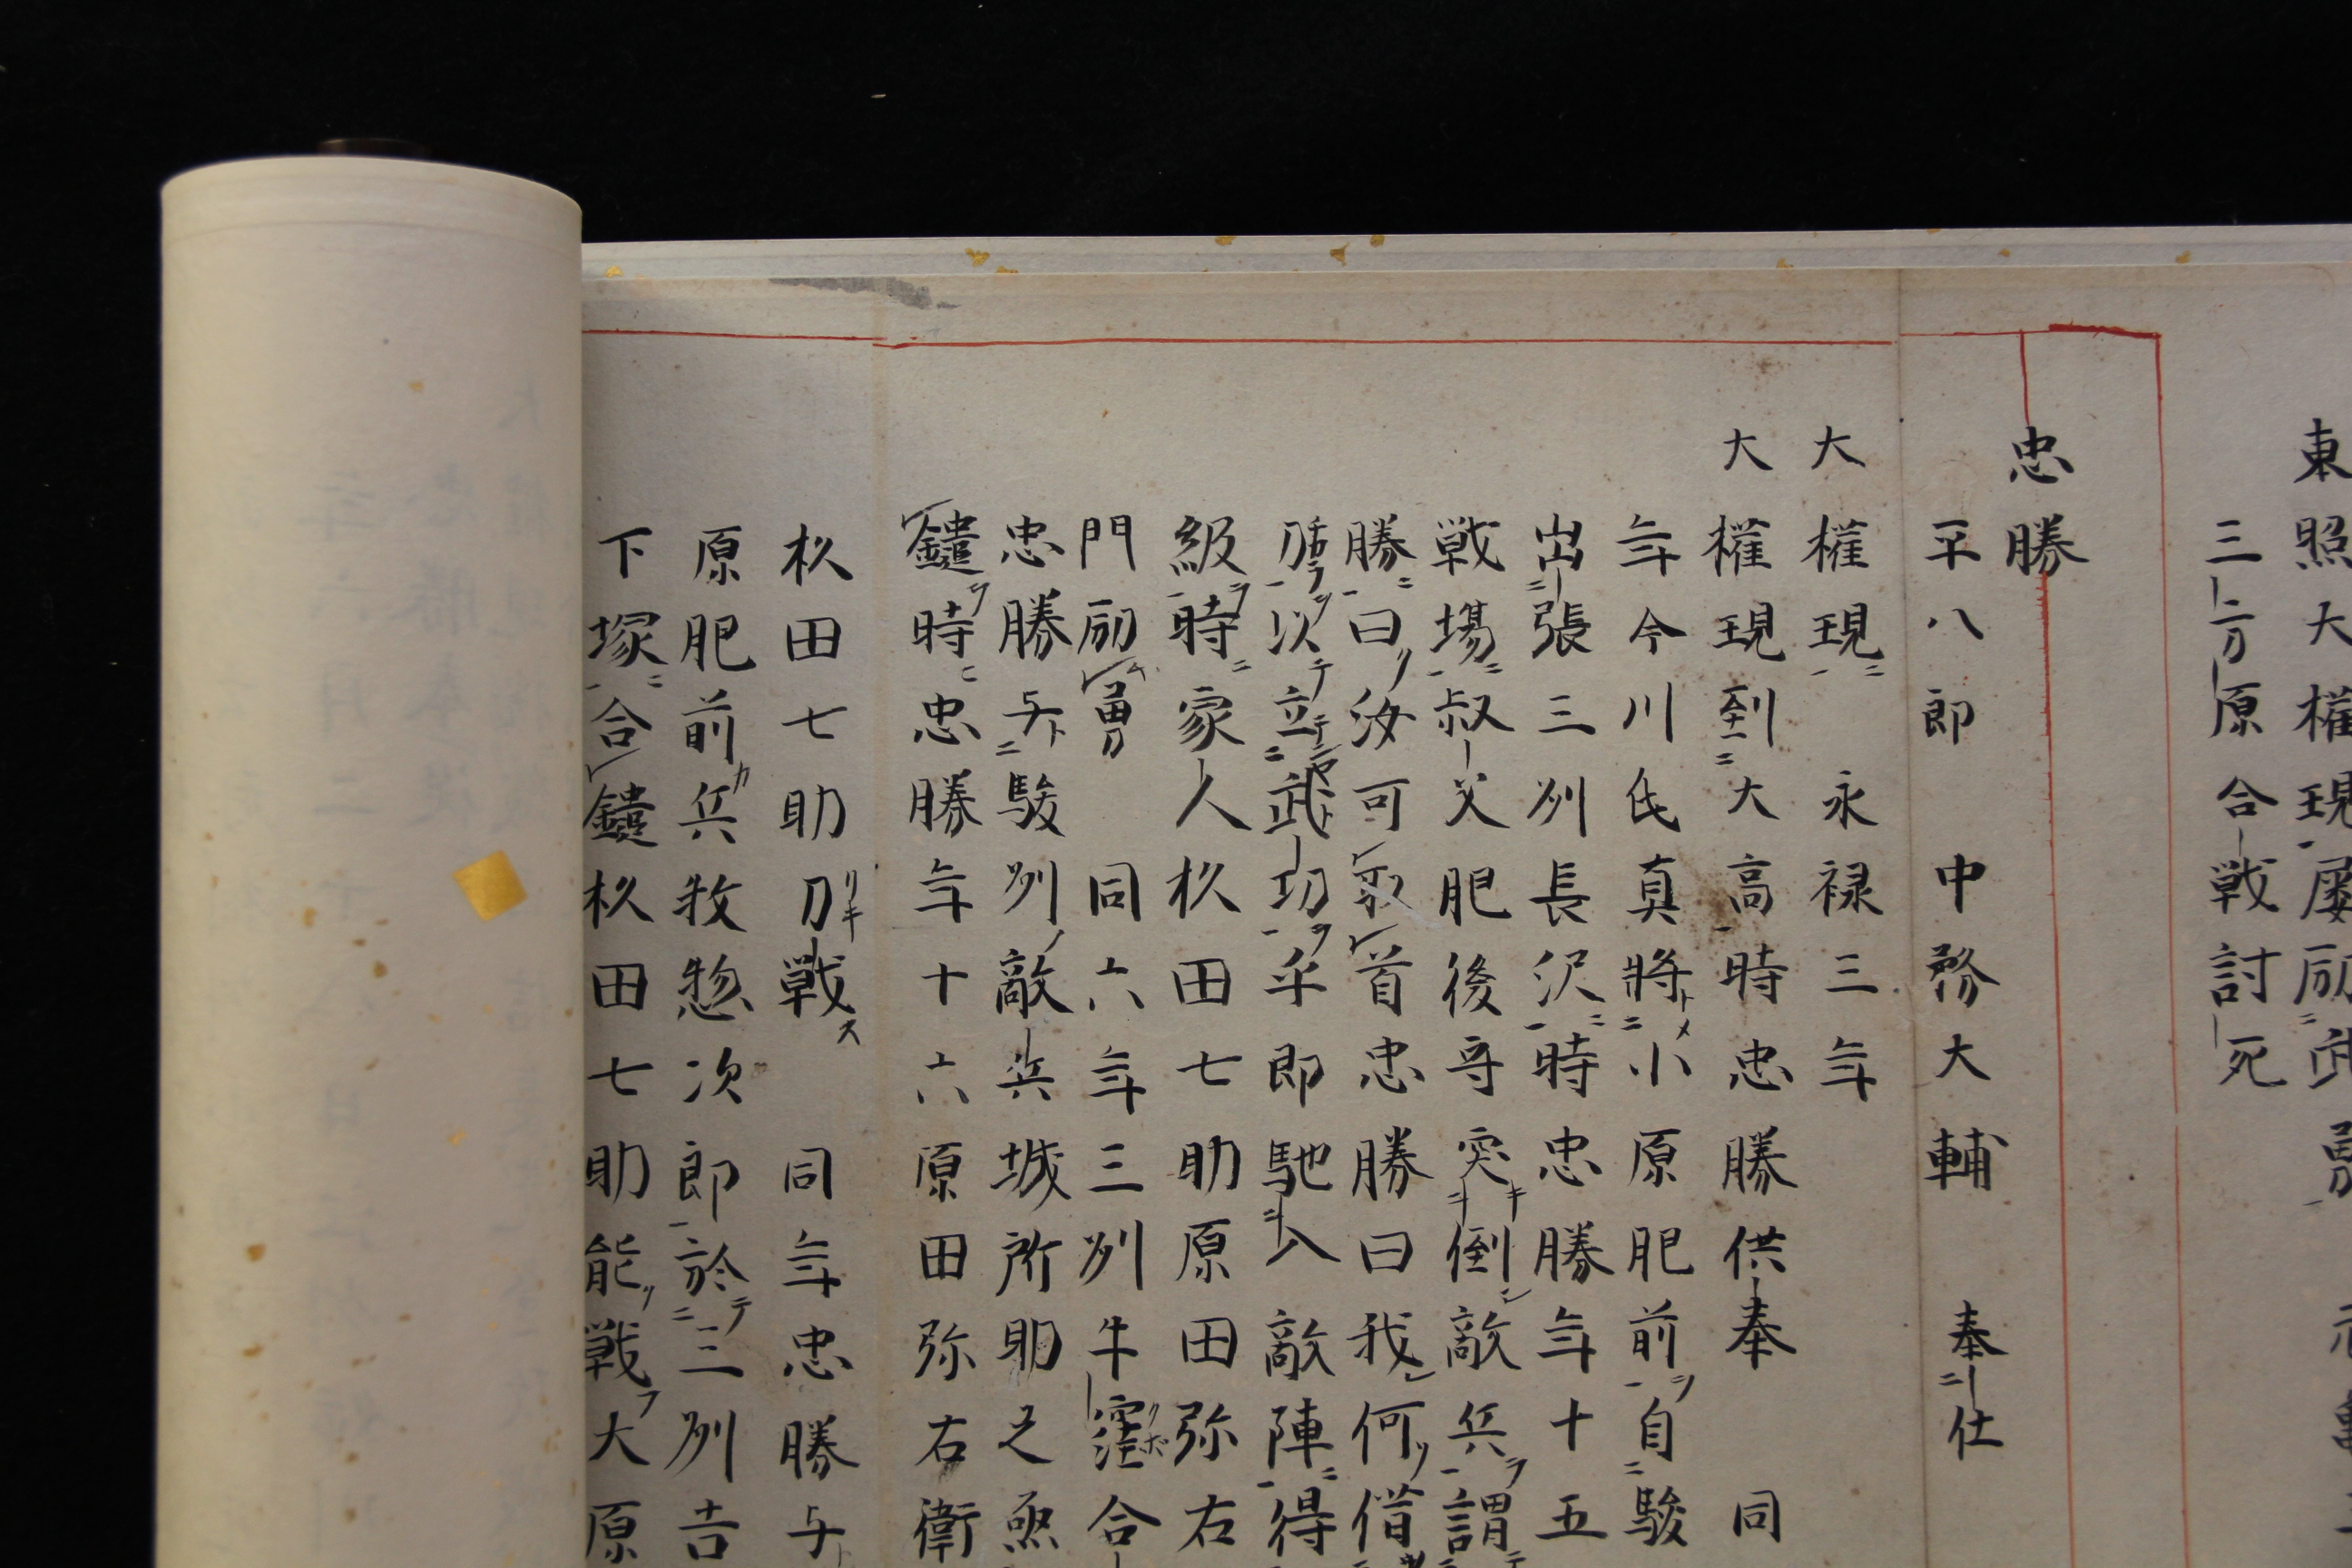 東照大權現屡
三方原合戦討死
忠勝
平八郎　中務大輔　奉仕
大權現　永禄三年
大權現到大高時忠勝供奉　同
年今川氏真将小原肥前自駿
出張三州長沢時忠勝年十五
戦場叔父肥後守突倒敵兵謂
勝曰汝可取首忠勝曰我何借
以立武功乎即馳入敵陣得
級時家人杦田七助原田弥右
門励勇　同六年三州牛窪合
忠勝与駿州敵兵城所助之丞
鑓時忠勝年十六原田弥右衛
杦田七助刀戦　同年忠勝与
原肥前兵牧惣次郎於三州吉
下塚合鑓杦田七助能戦大原